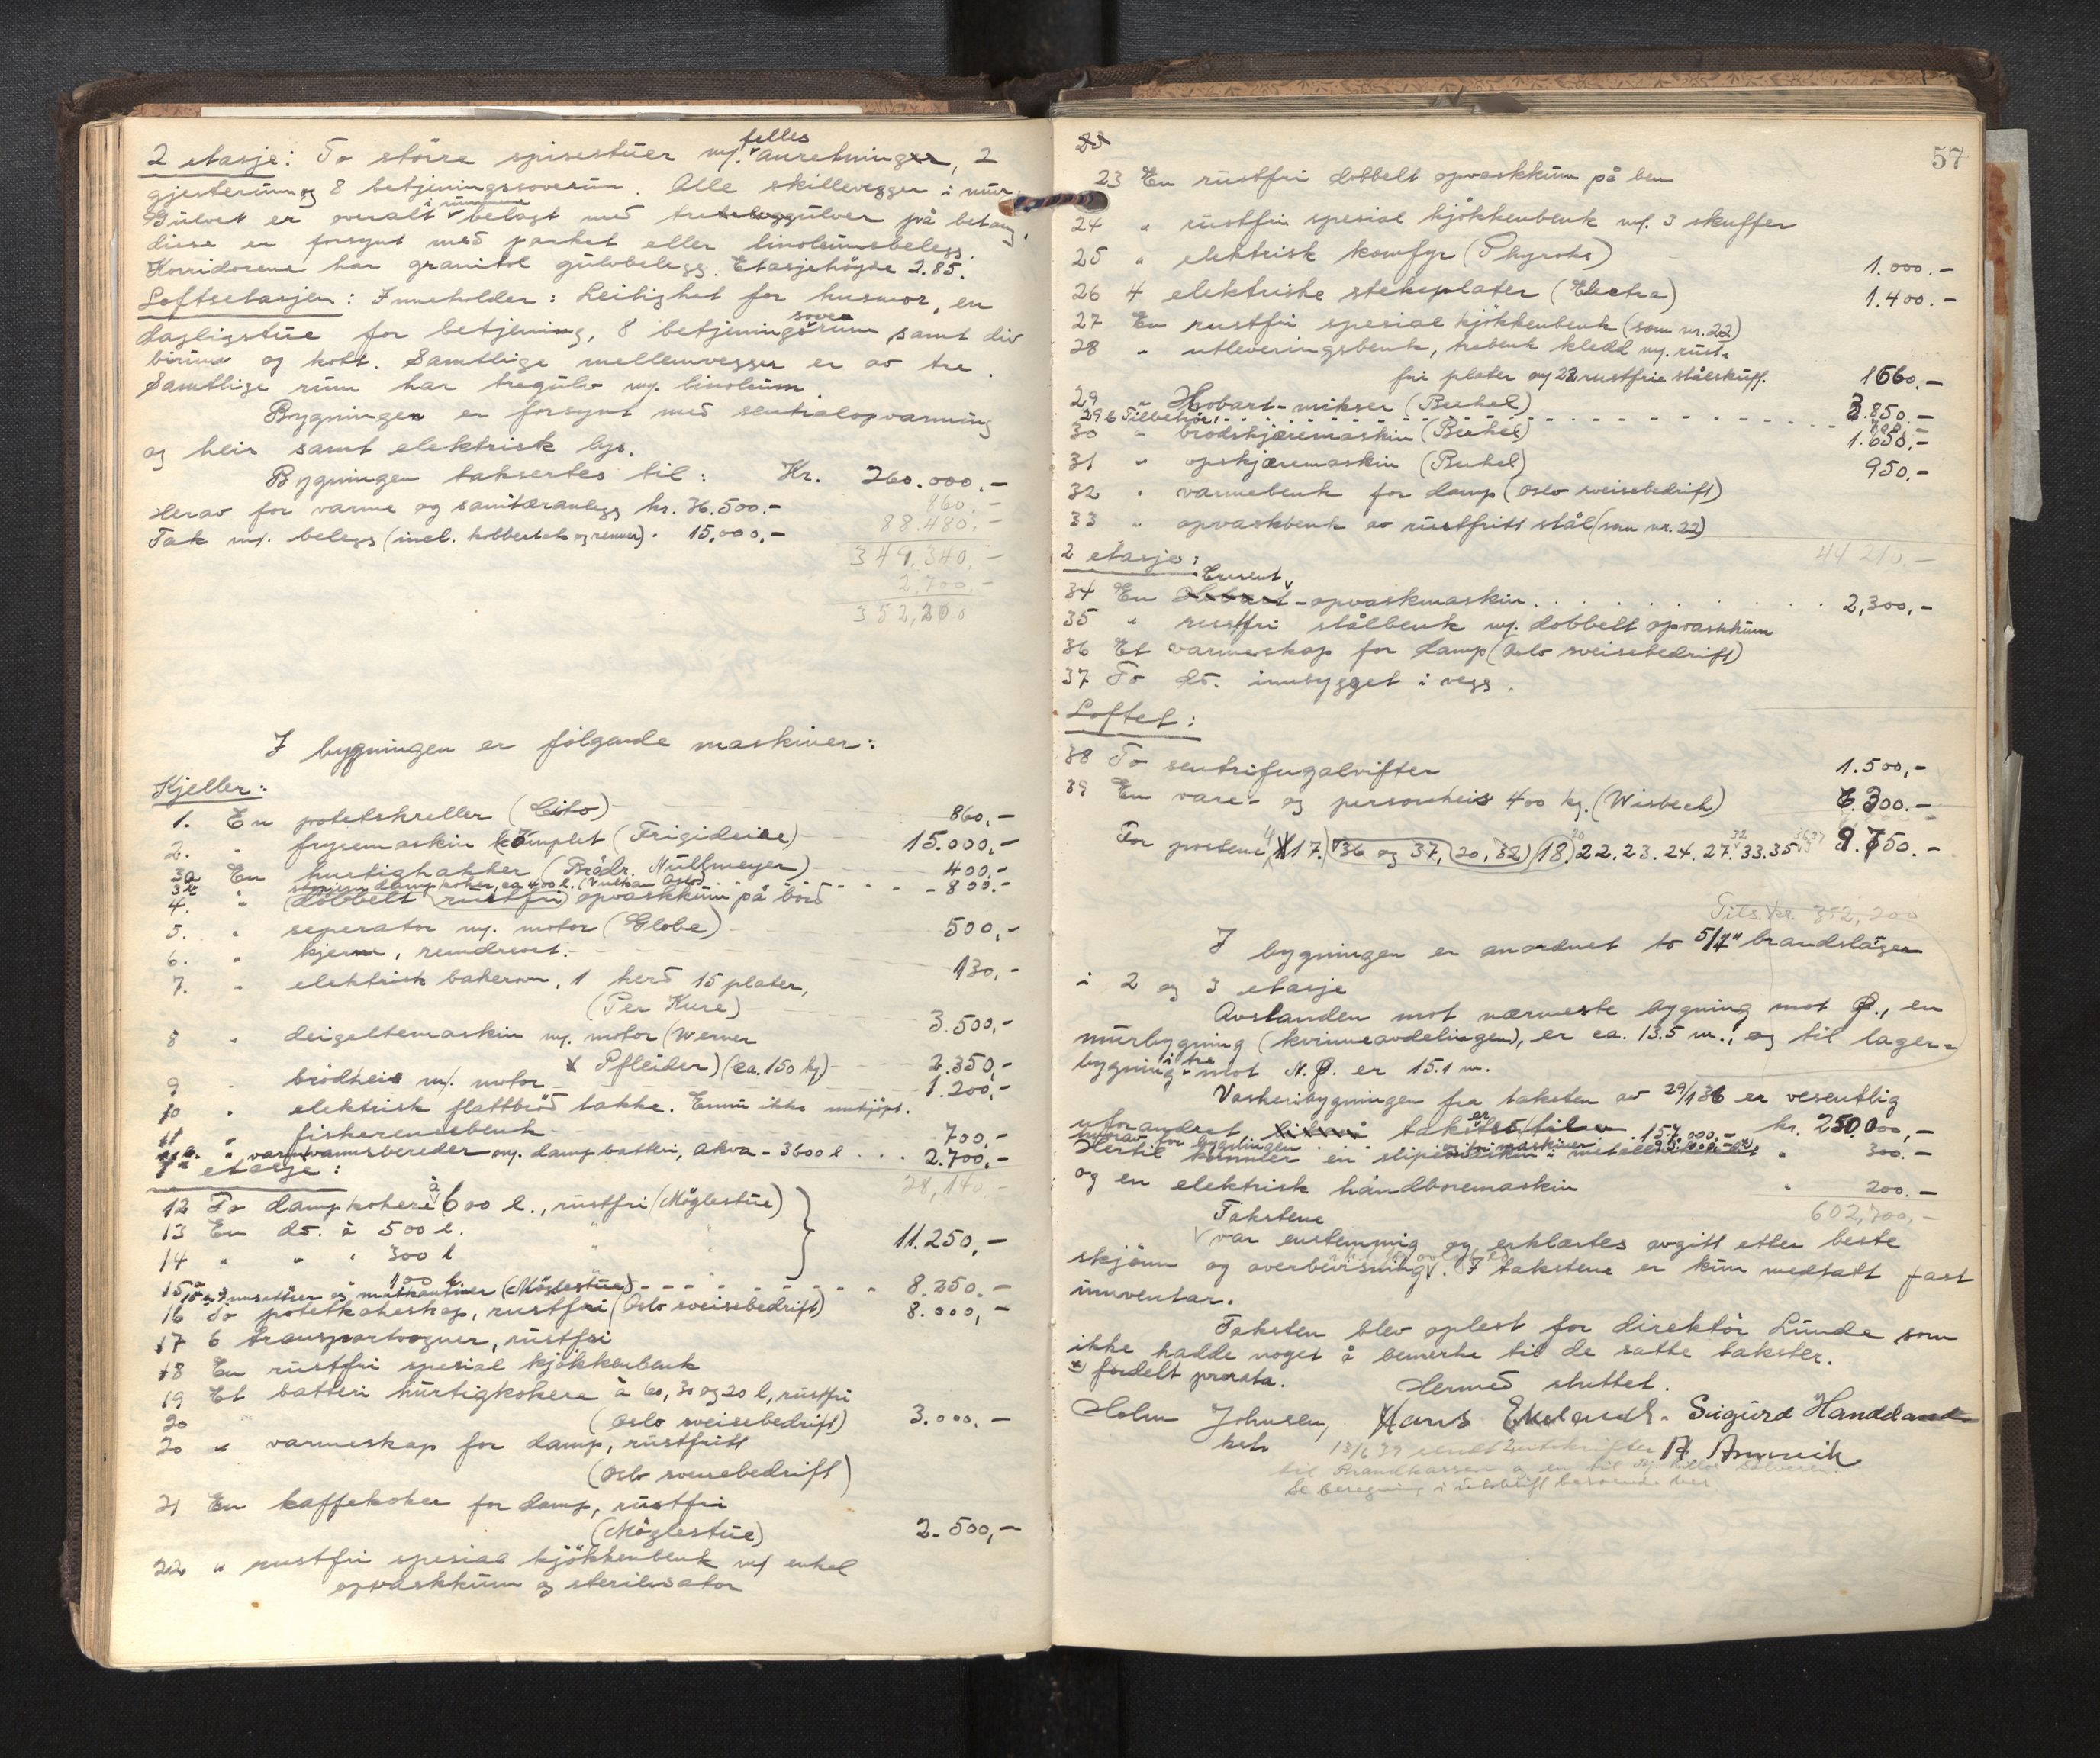 2 etasje: To större spisestuer m/. felles anretninger, 2
gjesterum og 8 betjeningssoverum. Alle skillevegger i mur.
Gulvet er overalt i rummene belagt med tregulver på betong,
disse er forsynt med parket eller linoleumsbelegg.
Korridorene har granitol gulvbelegg. Etasjehöyde 2.85.
Loftsetasjen: Inneholder: Leilighet for husmor, en
dagligstue for betjening, 8 betjeningssoverum samt div
birum og kott. Samtlige mellemvegger er av tre.
Samtlige rum har tregulv m/. linoleum.
Bygningen er forsynt med sentralopvarming
og heis samt elektrisk lys.
Bygningen taksertes til: Kr. 260.000.-
860.-
Herav for varme og sanitæranlegg kr. 36.500.-
88.480.-
Tak m/. belegg (incl. kobbertak og renner). 15,000,-
349,340,-
2.700.-
352,200
I bygningen er fölgende maskiner:
Kjeller:
1. En potetskreller (Cito) 860,-
2. " frysemaskin komplet (Frigideire) 15.000,-
3a En hurtighakker (Brödr. Müllmeyer) 400,-
3b " dampkoker, ca 400 l. (Vulkan Oslo) - 800.-
4. " (dobbelt rustfri) opvaskkum på bord
5. " seperator m/. motor (Globe) 500,-
6. " kjerne, remdrevet. 130,-
7. " elektrisk bakerovn, 1 herd 15 plater,
(Per Kure) 3.500,-
8 " deigeltemaskin m/. motor (Werner
& Pfleider) (ca. 150 kg) 2.350,-
9 " brödheis m/. motor 1.200,-
10 " elektrisk flattbröd takke. Ennu ikke innkjöpt.
11 " fiskerensebenk 700.-
11a. " varmtvannsbereder m/. dampbatteri, akva - 3600 l ... 2.700,-
1ste etasje: 28,140.-
12 To dampkokere à 600 l., rustfri (Möglestue)
13 En do. à 500 l.
14 " " " 300 l 11.250,-
100 l
15, innsatser og matkantiner (Möglestue) - - - 8.250.-
16 To potetkokeskap, rustfri (Oslo sveisebedrift) 8.000,-
17 6 transportvogner, rustfri
18 En rustfri spesial kjökkenbenk
19 Et batteri hurtigkokere à 60, 30 og 20 l, rustfri
20 (Oslo sveisebedrift) 3.000.-
20 " varmeskap for damp, rustfritt
(Oslo sveisebedrift)
21 En kaffekoker for damp, rustfri
(Möglestue) 2.500,-
22 " rustfri spesial kjökkenbenk m/ enkel
opvaskkum og sterilisator
57
23
23 En rustfri dobbelt opvaskkum på ben
24 " rustfri spesial kjökkenbenk m/. 3 skuffer
25 " elektrisk komfyr (Thyrohs) 1.000.-
26 4 elektriske stekeplater (Electra) 1.400.-
27 En rustfri spesial kjökkenbenk (som nr. 22)
28 " utleveringsbenk, trebenk kledd m/. rust-
fri plater m/ 22 rustfrie stålskuff. 1660.-
29 " Hobart-mikser (Berkel) 3.850.-
29b Tilbehör:
30 " brödskjæremaskin (Berkel) 1.650,-
31 " opskjæremaskin (Berkel) 950,-
32 " varmebenk for damp (Oslo sveisebedrift)
33 " opvaskbenk av rustfritt stål (som nr. 22)
44 210.-
2 etasje:
34 En Hobart Cresent - opvaskmaskin . . . . . 2,300,-
35 " rustfri stålbenk m/. dobbelt opvaskkum
36 Et varmeskap for damp (Oslo sveisebedrift)
37 To do. innbygget i vegg.
Loftet:
38 To sentrifugalvifter 1.500,-
39 En vare- og personheis 400 kg. (Wisbech) 6.300.-
For postene 4, 17. (36 og 37, 20, 32) 18. 20 22. 23. 24. 27. 32 33. 35 36 37 9.750.-
Tils. kr. 352,200
I bygningen er anordnet to 5/4" brandslager
i 2 og 3 etasje
Avstanden mot nærmeste bygning mot Ö., en
murbygning (kvinneavdelingen), er ca. 13.5 m., og til lager-
bygning i tre mot N.Ö. er 15.1 m.
Vaskeribygningen fra taksten av 29/1 36 er vesentlig
uforandret takstes til kr. 250.000,-
hvorav for bygningen 157.000.-
Hertil kommer en slipemaskin " 300.-
og en elektrisk håndboremaskin " 200.-
602,700,-
Takstene
var enstemmig og erklærtes avgitt etter beste
skjönn og overbevisning. I takstene er kun medtatt fast
innventar.
Taksten blev oplest for direktör Lunde som
ikke hadde noget å bemerke til de satte takster.
x) fordelt prorata. Hermed sluttet.
Holm Johnsen, Hans Sigurd Handdand
A. Amrneik
13/6 39 sendt 2 utskrifter
til Brandkassen og en til